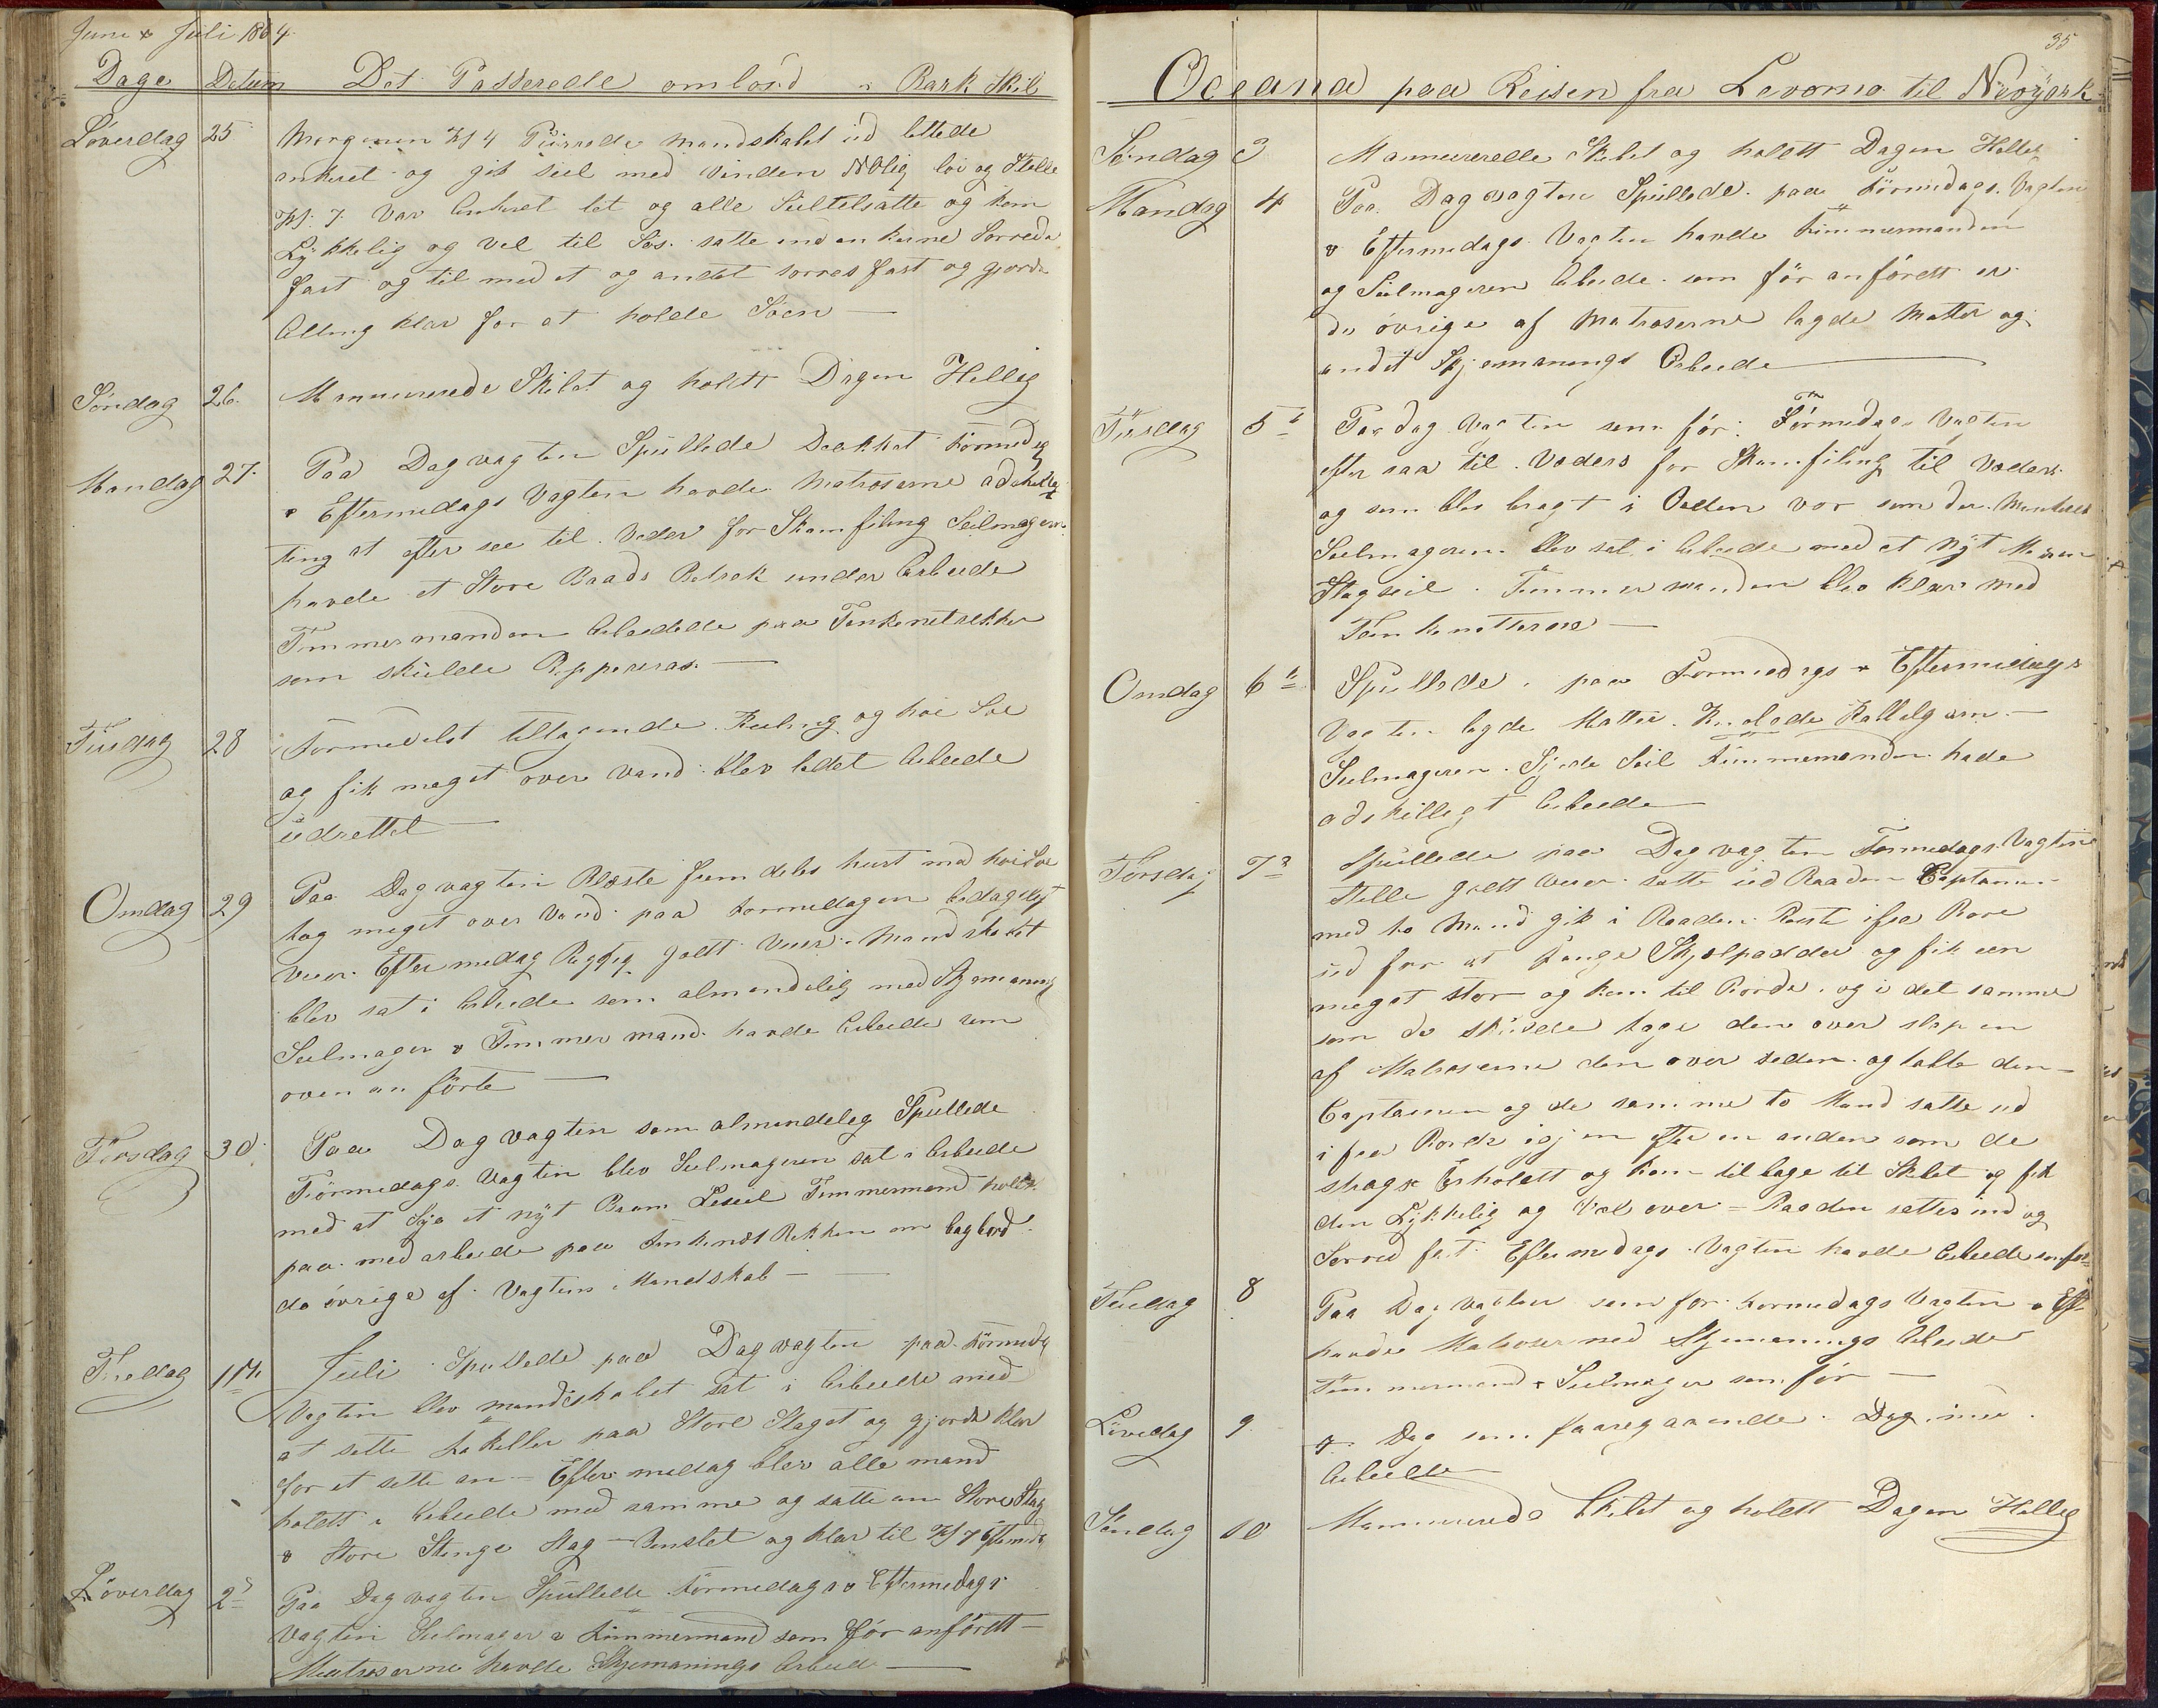 Juni & Juli 1864
Dage Datum Det Passerede ombord i Bark Skib
Löverdag 25 Morgenen Kl 4 Purrede mandskabet ud lettede
ankeret og gik seil med Vinden NOlig löi og Stille
Kl. 7. Var Ankeret let og alle Seil tilsatte og kom
Lykkelig og Vel til Sös. satte ind ankerne Sorrede
fast og til med et og andet sorres fast og gjorde
Alting klar for at holde Söen —
Söndag 26. Mannuverede Skibet og holdt Dagen Hellig
Mandag 27. Paa Dagvagten Spullede Dækket Formedag
& Eftermedags Vagten havde Matroserne adskellig
ting at efter see til. Veder for Skamfiling Seilmageren
havde et Store Baads Betræk under Arbeide
Tömmermanden Arbeidede paa Finkenetrekker
som skulde Repperæres. —
Tirsdag 28 Formedelst tiltagende Kuling og höi Söe
og fik meget over vand blev lidet Arbeide
udrettet —
Onsdag 29 Paa Dagvagten Blæste sumdeles hart med höi Söe
tog meget over Vand paa Formedagen bedageligt
Veier. Eftermedag Rigtig godt Veier. Mandskabet
blev sat i Arbeide som almendelig med Skjemanning
Seilmager & Tömmermand havde Arbeide som
oven anförte —
Torsdag 30. Paa Dagvagten som almendeleg Spullede
Förmedags Vagten blev Seilmageren sat i Arbeide
med at Sye et nyt Baam Leseil Tömmermand holdt
paa med arbeide paa Finkenet Rekken om bagbord
de övrige af Vagtens Mandskab —
Fredag 1te Juli Spullede paa Dagvagten paa Förmedg
Vagten blev mandskabet sat i Arbeide med
at sette Takeller paa Store Staget og gjorde klar
for et sette an — Eftermedag blev alle mand
holdt i Arbeide med samme og satte an Store Stag
& Store Stenge Stag — og klar til Kl 7 Eftermedg
Löverdag 2d Paa Dagvagten Spullede Förmedags & Eftermedags
Vagten Seilmager & Tömmermand som för anfördt —
Matroserne havde Skjemannings Arbeid —
35
Oceana paa Reisen fra Levorno til Newyork
Söndag 3 Mannuverede Skibet og holdtt Dagen Hellig
Mandag 4 Paa Dagvagten Spullede. paa Förmedags Vagten
& Eftermedags Vagten havde Tömmermanden
og Seilmageren Arbeide som för anfördt er
de övrige af Matroserne lagde Matter og
andet Skjemannings Arbeide
Tirsdag 5te Paa Dag Vagten som för. Förmedags Vagten
efter saa til Veders for Skamfiling til Veders
og som blev bragt i Orden vor som der Mankered
Seilmageren blev sat i Arbeide med et Nyt Mesan
Stagseil. Tömmermanden blev klar med
Finkenetterne —
Onsdag 6te Spullede. paa Formedags & Eftermedags
Vagten lagde Matter. Kalladgarn —
Seilmageren Syede Seil Tömmemanden hade
adskilligt Arbeide —
Torsdag 7de Spullede paa Dagvagten Formedags Vagten
Stille godt Veier. satte ud Baaden Captainen
med to Mand gik i Baaden Rorte ifra Bore
ud for at fange Skjelpadder og fik een
meget stor og kom til Borde. og i det samme
som de skulde tage den over slap en
af Matroserne den over seden og tabte den —
Captainen og de samme to Mand satte ud
i fra Borde igjen efter en anden som de
strags Erholdtt og kom tilbage til Skibet og fik
den Lykkelig og Vel over = Baaden sattes ind og
Sorred fast Eftermedags Vagten havde Arbeide som för
Fredag 8 Paa Dagvagten som for Formedags Vagten & Eft
havde Matroser med Skjemannings Arbeide
Tömmermand & Seilmager som för —
Löverdag 9. Dag som foregaaende Dag
Arbeide —
Söndag 10 Mannuverede Skibet og holdtt Dagen Hellig